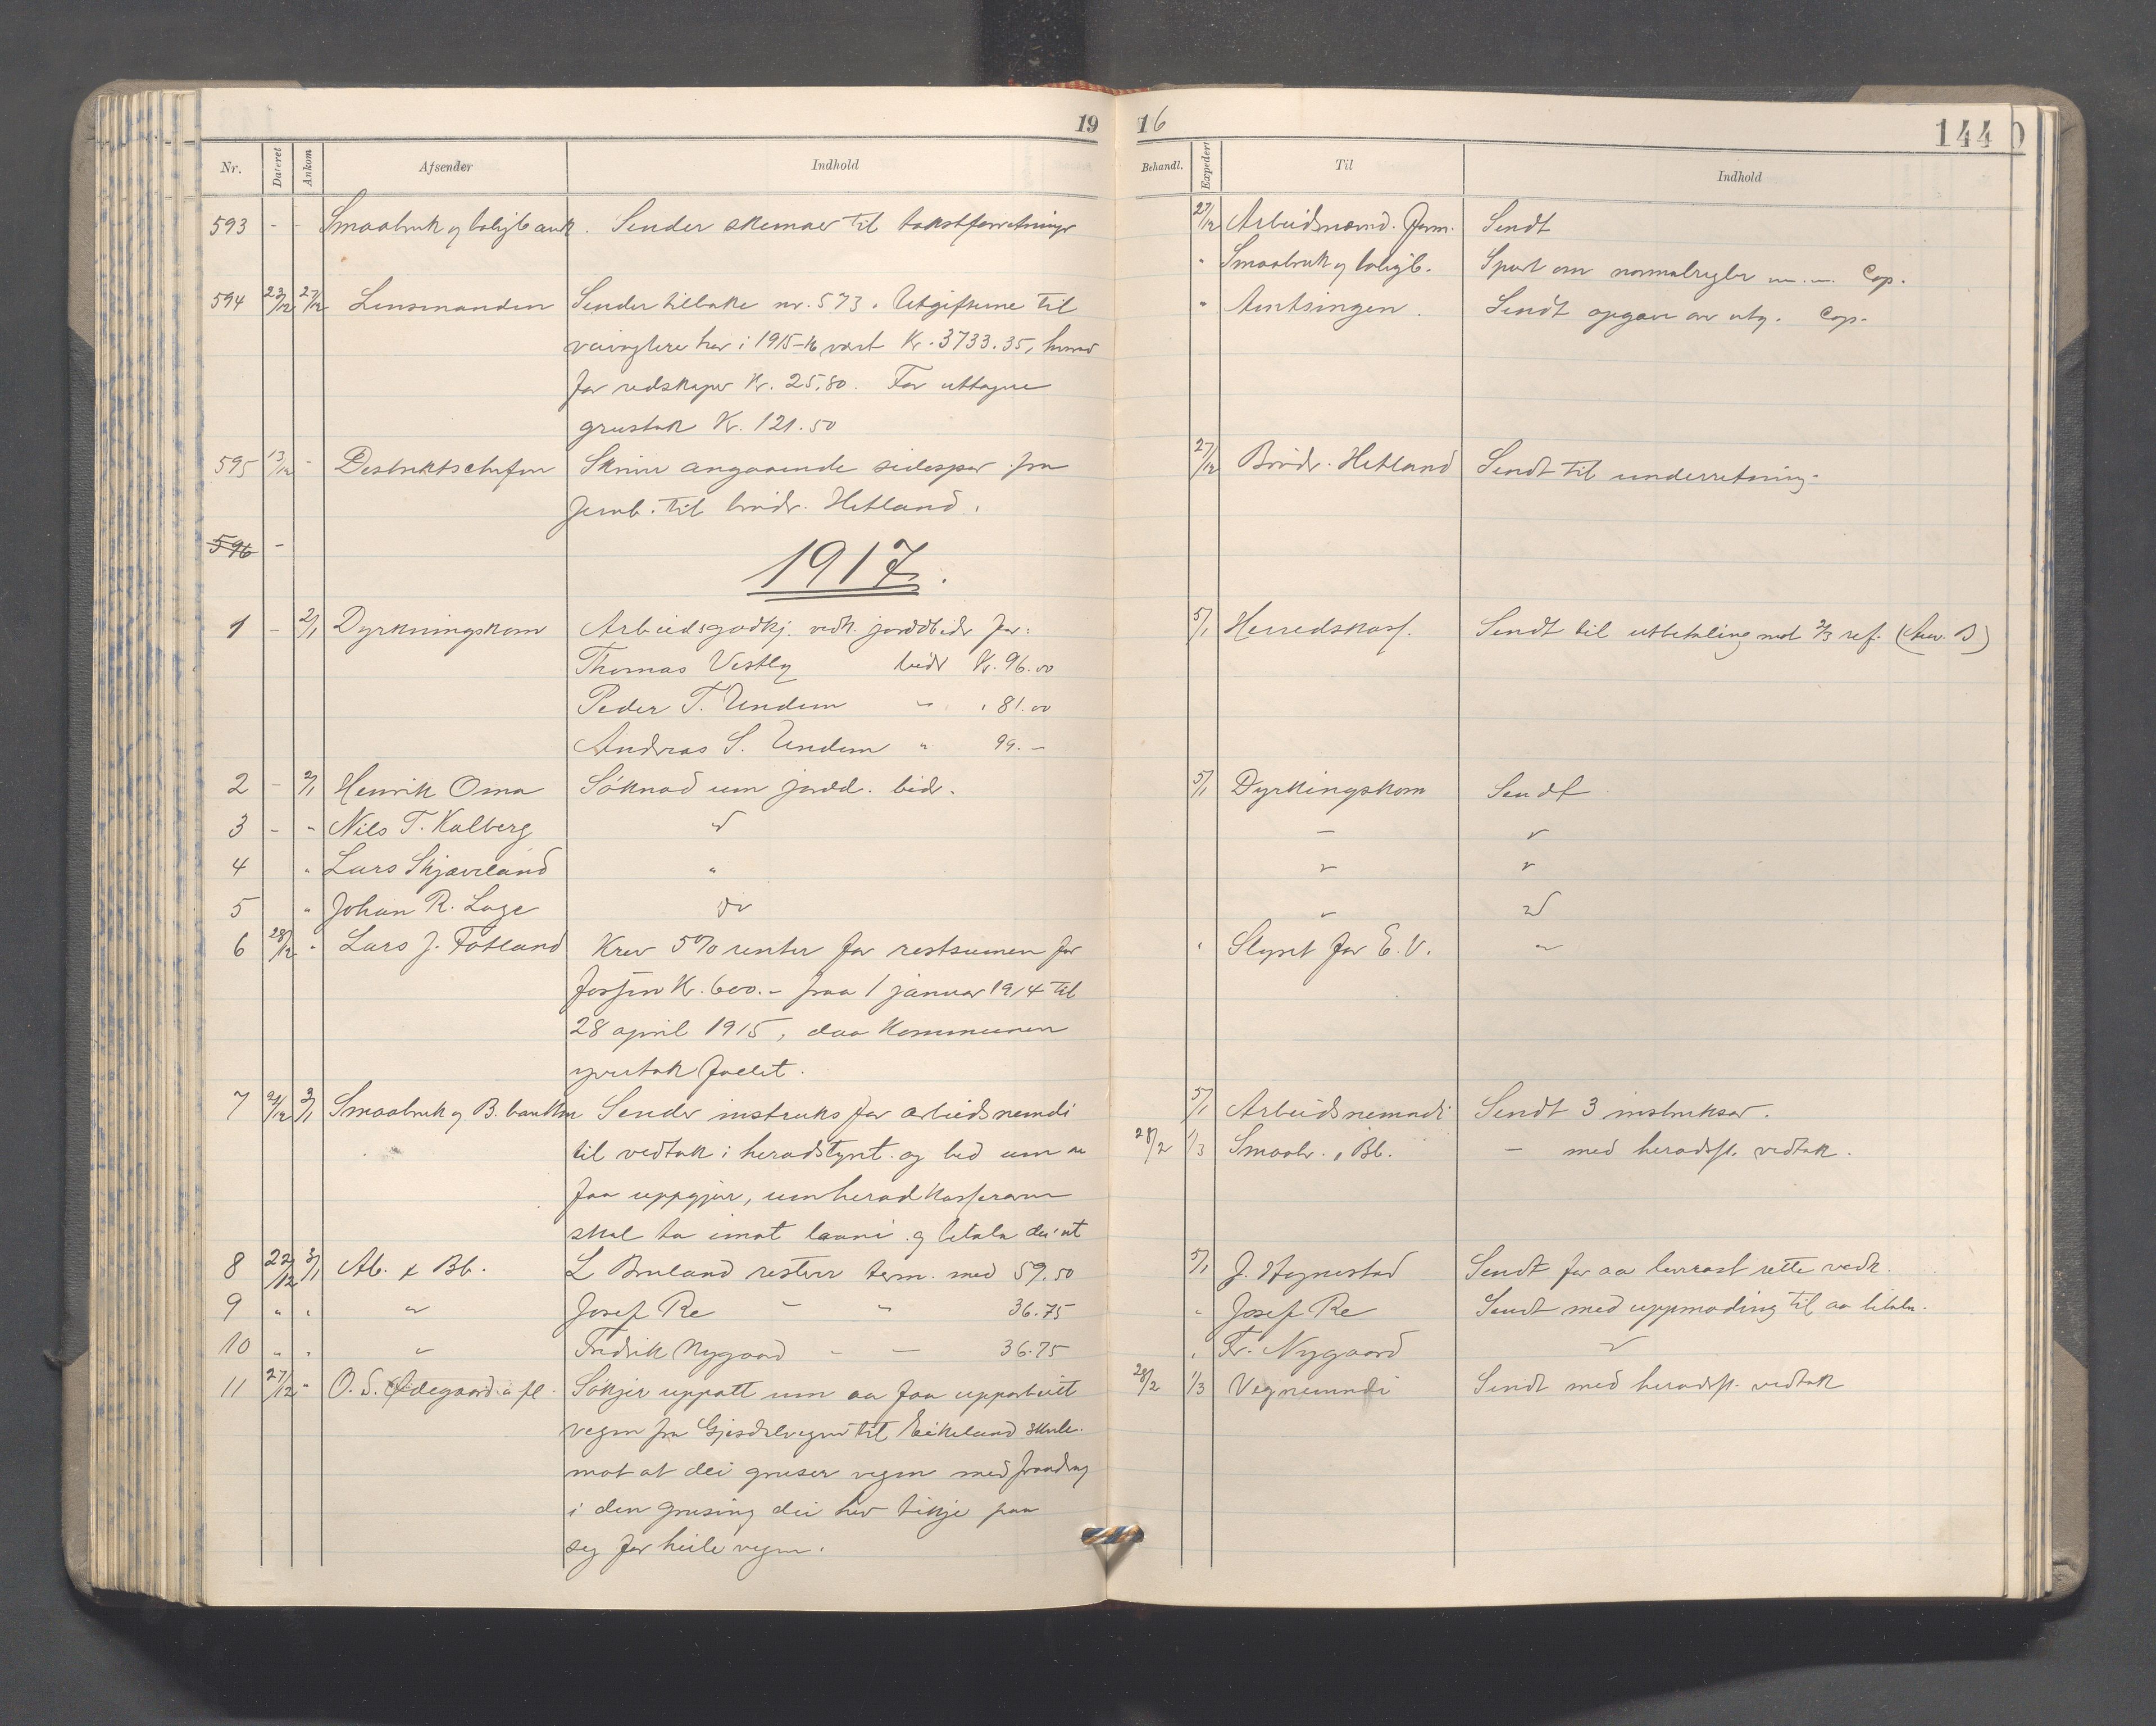 19
16
144
Nr.
Dateret
Ankom
Afsender
Indhold
Behandl.
Expedert
Til
Indhold
593 - - Smaabruk og boligbank. Sender skemaer til takstforretninger
27/12 Arbeidsnævnd. Form. Sendt
" Smaabruk og boligb. Spurt om normalregler Cop.
594 23/12 27/12 Lensmanden Sender tilbake nr. 573. Utgifterne til
" Amtsingen. Sendt opgave over utg. Cop.
veivogtere har i 1915-16 vært Kr. 3733.35, hvorav
for redskaper Kr. 25.80. For uttagne
grustak Kr. 121.50
595 13/12 - Destriktschefen Skrive angaaende sidespor fra
27/12 Brødr. Hetland Sendt til underretning.
Jernb. til brødr. Hetland.
596 -
1917.
1 - 2/1 Dyrkningskom Arbeidsgodkj. vedk. jorddbidr for:
5/1 Herredskass. Sendt til utbetaling med 2/3 ref.
Thomas Vestly bidr Kr. 96.00
Peder T. Undem " " 81.00
Andreas S. Undem " 99.-
2 - 2/1 Henrik Oma Søknad um jordd. bidr.
5/1 Dyrkingskom Sendt
3 - " Nils T. Kalberg "
- "
4 " Lars Skjæveland "
" "
5 " Johan R. Lage "
" "
6 28/12 " Lars J. Fotland Krev 5% renter for restsummen for
" Styret for E.V. "
fossen Kr. 600.- fraa 1 januar 1914 til
28 april 1915, daa Kommunen
yvertok fallet.
7 21/12 3/1 Smaabruk og B. banken Sender instruks for arbeidsnemndi
5/1 Arbeidsnemndi Sendt 3 instruksar.
til vedtak i heradstyret. og bed um aa
28/2 1/3 Smaabr. " Bb. - med heradsst. vedtak.
faa uppgjevr, um heradkasseraren
skal ta imot laani og betala dei ut
8 22/12 3/1 Ab. & Bb. L Bruland resterer term. med 59.50
5/1 J. Hognestad Sendt for aa besvart rette vedk.
9 " " " Josef Re - " 36.75
" Josef Re Sendt med uppmoding til aa betala.
10 " " " Fredrik Nygaard - - 36.75
" Fr. Nygaard "
11 27/12 " O. S. Ødegaard a. fl. Søkjer uppatt um aa faa upparbeidt
28/2 1/3 Vegnemndi Sendt med heradsst. vedtak
vegen fra Gjesdalvegen til Eikeland skule.
mot at dei gruser vegen med fraadrag
i den grusing dei hev tikje paa
seg for heile vegen.